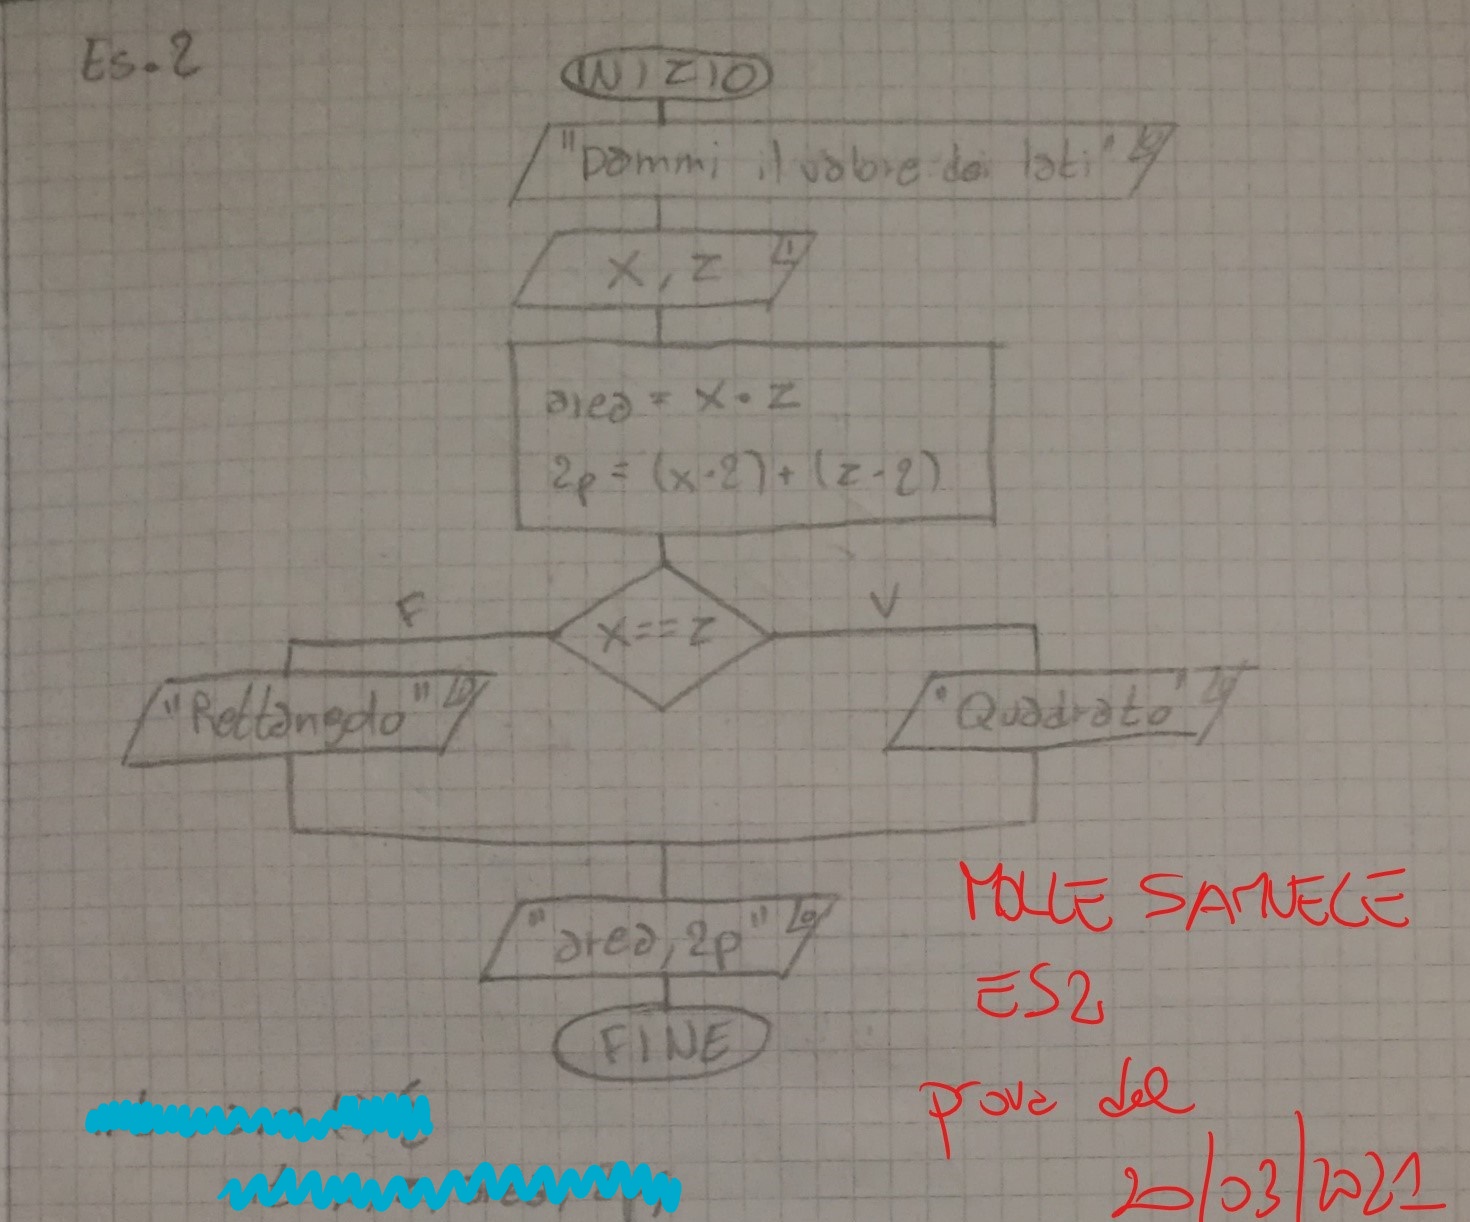 Es. 2
INIZIO
"Dammi il valore dei lati" O
x, z I
area = x · z
2p = (x·2) + (z·2)
F
x == z
V
"Rettangolo" O
"Quadrato" O
"area, 2p" O
FINE
MOLLE SAMUELE
ES2
prova del
20/03/2021